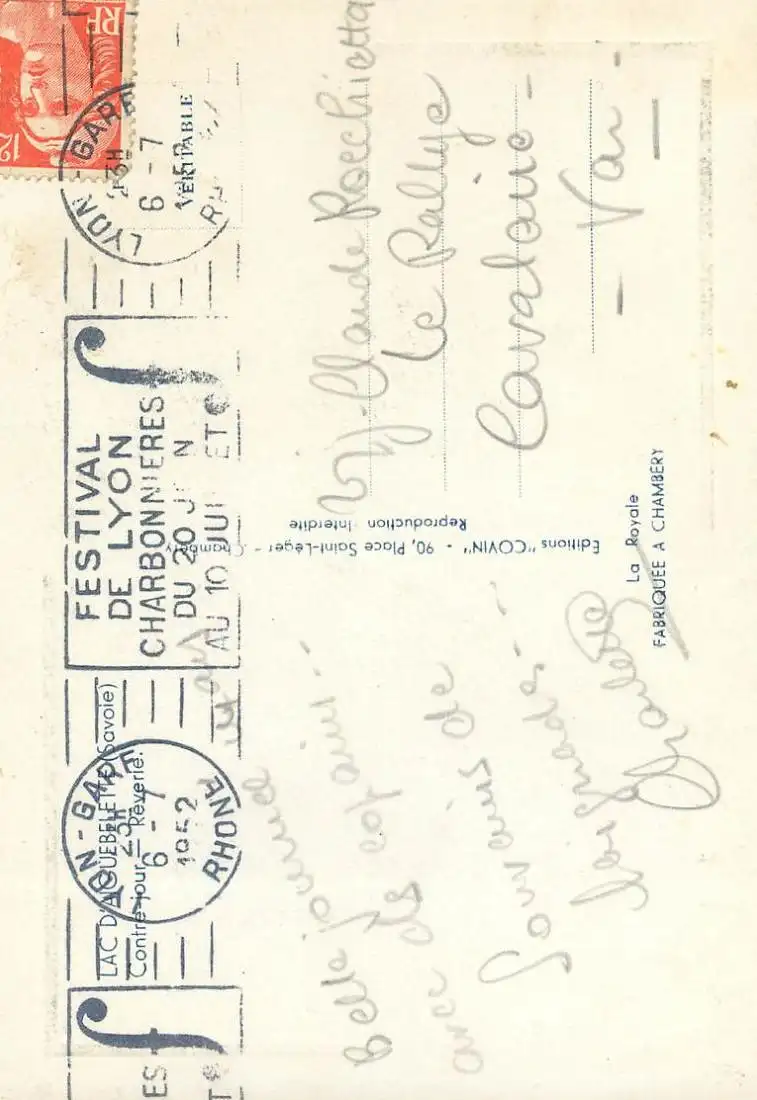 RF
12
LYON-GARE
23H
6-7
1952
RHONE
VÉRITABLE
FESTIVAL
DE LYON
CHARBONNIERES
DU 20 JUIN
AU 10 JUILLET
LYON-GARE
23H
6-7
1952
RHONE
ES
LAC D'AIGUEBELETTE (Savoie)
Contre-jour — Rêverie.
Belle journée
avec des copains.-
Souvenirs de
Claude Rocchietta
Le Rallye
Cavalaire-
- Var -
Editions "COVIN" - 90, Place Saint-Léger - Chambéry
Reproduction Interdite
La Royale
FABRIQUÉE A CHAMBÉRY